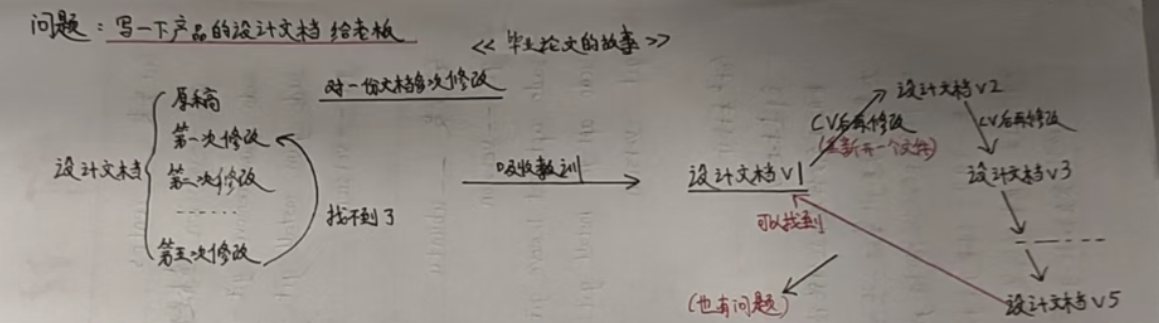 问题：写一下产品的设计文档 给老板
<< 毕业论文的故事 >>
对一份文档多次修改
设计文档
原稿
第一次修改
第二次修改
-------
第五次修改
找不到了
吸收教训
设计文档 V1
CV后再修改
(重新开一个文件)
设计文档 V2
CV后再修改
设计文档 V3
-------
设计文档 V5
可以找到
(也有问题)